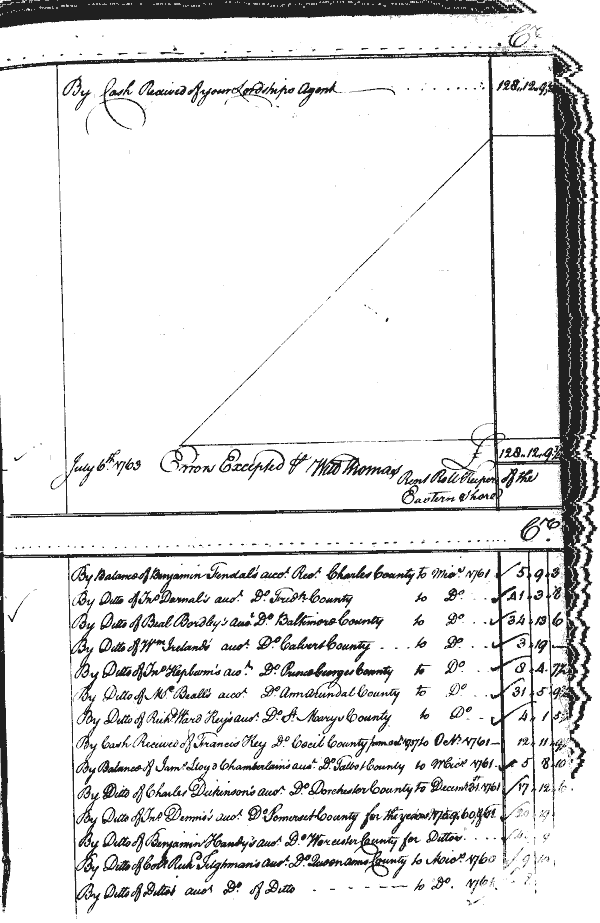 Cr
By Cash Received of your Lordships Agent 128..12..9¾
£ 128..12..9¾
July 6th 1763 Errors Excepted Wm Thomas
Rent Roll Keeper of the
Eastern Shore
Cr
By Balance of Benjamin Fendal's accot Recr Charles County to Micos 1761 5 9 3
By Ditto of Jno Darnal's accot Do Fredk County to Do 41 3 8
By Ditto of Beal Bordley's accot Do Baltimore County to Do 34 13 6
By Ditto of Wm Ireland's accot Do Calvert County to Do 3 19 —
By Ditto of Jno Hepburn's accot Do Prince Georges County to Do 8 4
By Ditto of Mr Beall's accot Do Ann Arundal County to Do 31 5
By Ditto of Richd Ward Key's accot Do St Marys County to Do 4 1
By Cash Received of Francis Key Do Cecil County to Octr 1761 12 11
By Balance of Jams Lloyd Chamberlain's accot Do Talbot County to Micos 1761 5 8 10
By Ditto of Charles Dickinson's accot Do Dorchester County to Decemr 31st 1761 17 12
By Ditto of Jno Dennis's accot Do Somerset County for the years 1759, 60, & 61
By Ditto of Benjamin Handy's accot Do Worcester County for Ditto
By Ditto of Colo Richd Tilghman's accot Do Queen Anns County to Micos 1760 9 10
By Ditto of Ditto's accot Do of Ditto to Do 1761